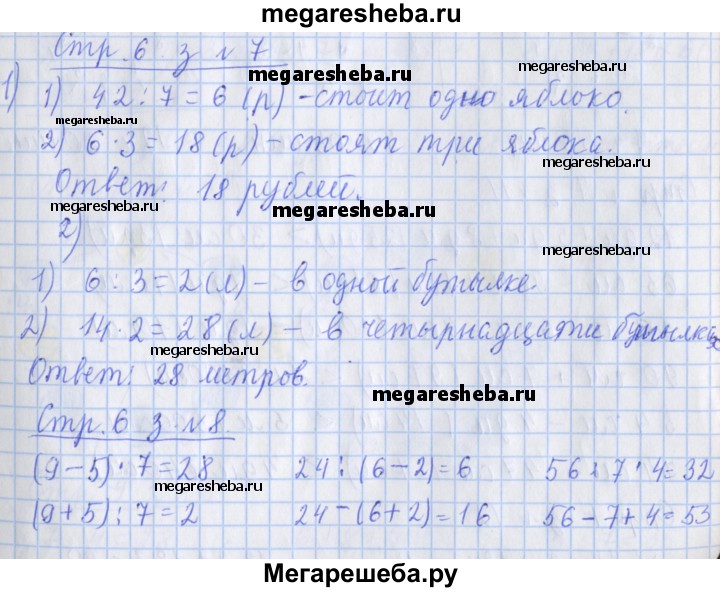 megaresheba.ru
Стр. 6 з № 7
megaresheba.ru
1) 1) 42 : 7 = 6 (р) - стоит одно яблоко.
megaresheba.ru
2) 6 · 3 = 18 (р) - стоят три яблока.
Ответ: 18 рублей.
megaresheba.ru
megaresheba.ru
2)
megaresheba.ru
1) 6 : 3 = 2 (л) - в одной бутылке.
2) 14 · 2 = 28 (л) - в четырнадцати бутылках
megaresheba.ru
Ответ: 28 метров.
megaresheba.ru
Стр. 6 з. № 8.
(9 - 5) · 7 = 28 24 : (6 - 2) = 6 56 : 7 · 4 = 32
megaresheba.ru
megaresheba.ru
(9 + 5) : 7 = 2 24 - (6 + 2) = 16 56 - 7 + 4 = 53
Мегарешеба.ру